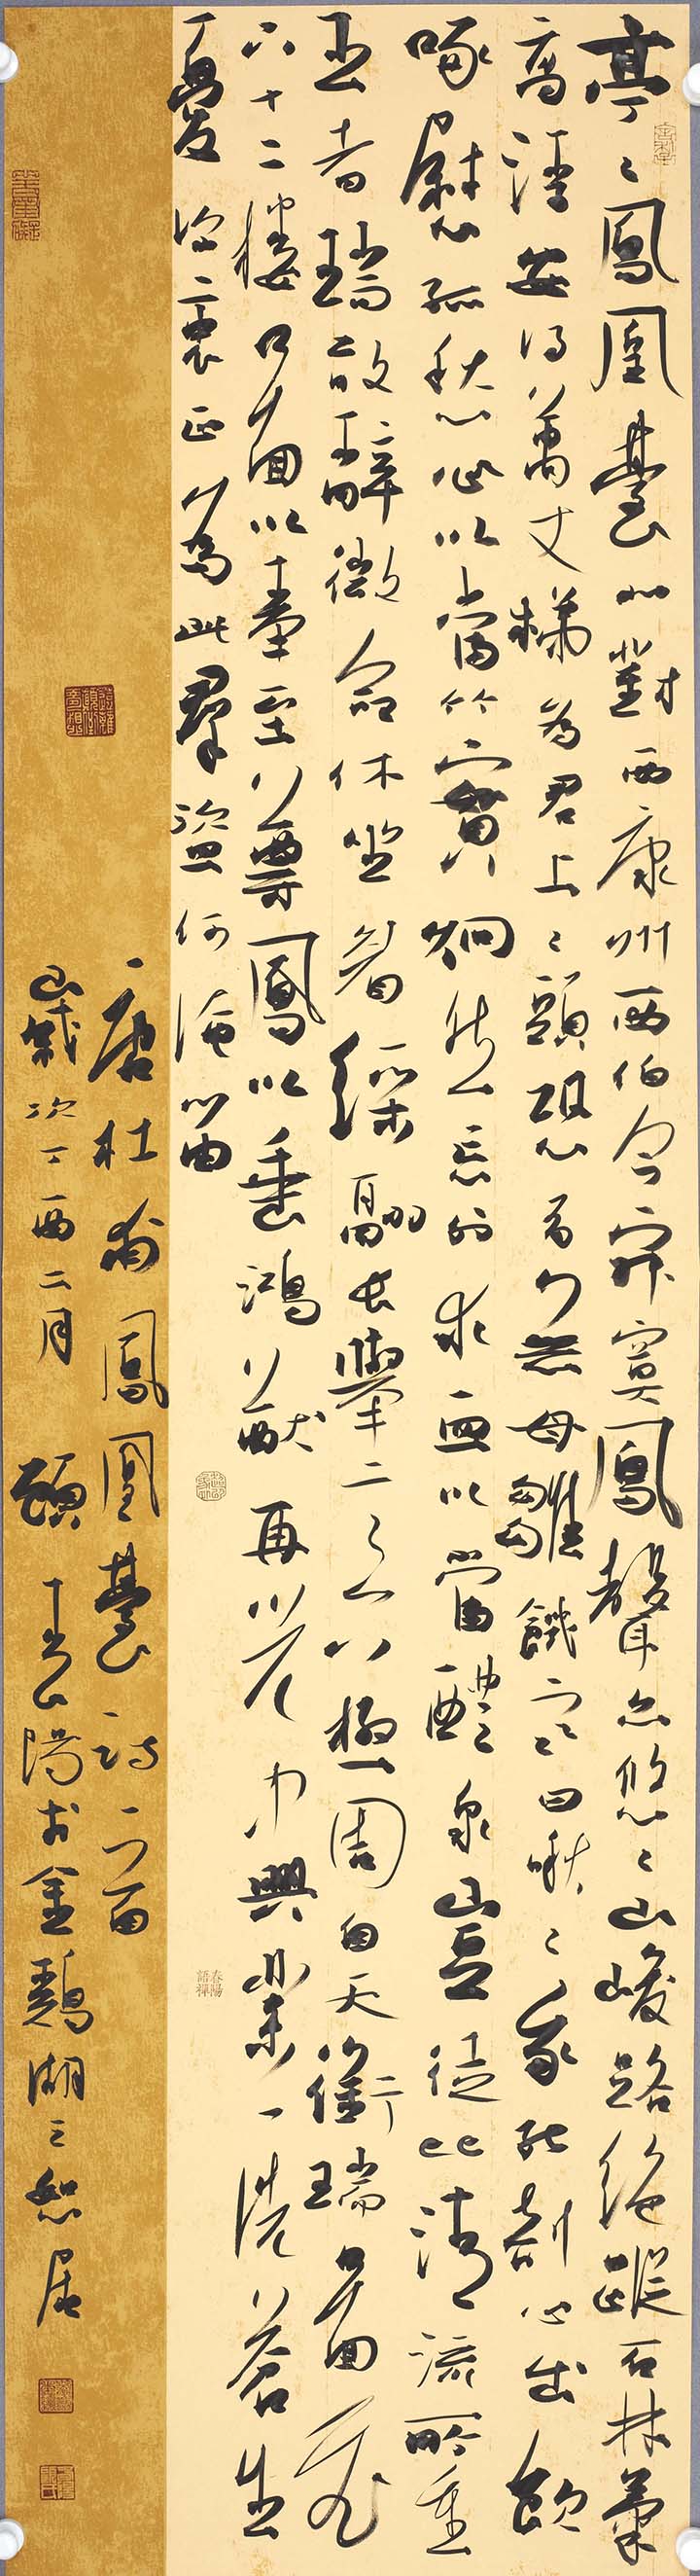 亭亭鳳凰臺北對西康州西伯今寂寞鳳聲亦悠悠山峻路絕蹤石林氣
高浮安得萬丈梯為君上上頭恐有無母雛饑寒日啾啾我能剖心出飲
啄慰孤愁心以當竹實炯然忘外求血以當醴泉豈徒比清流所重
王者瑞敢辭微命休坐看綵翮長舉意八極周自天銜瑞圖飛
下十二樓圖以奉至尊鳳以垂鴻猷再光中興業一洗蒼生
憂深衷正為此群盜何淹留
唐杜甫鳳凰臺詩一首
歲次丁酉二月 顧春陽於金鷄湖三恕居
春陽語禪